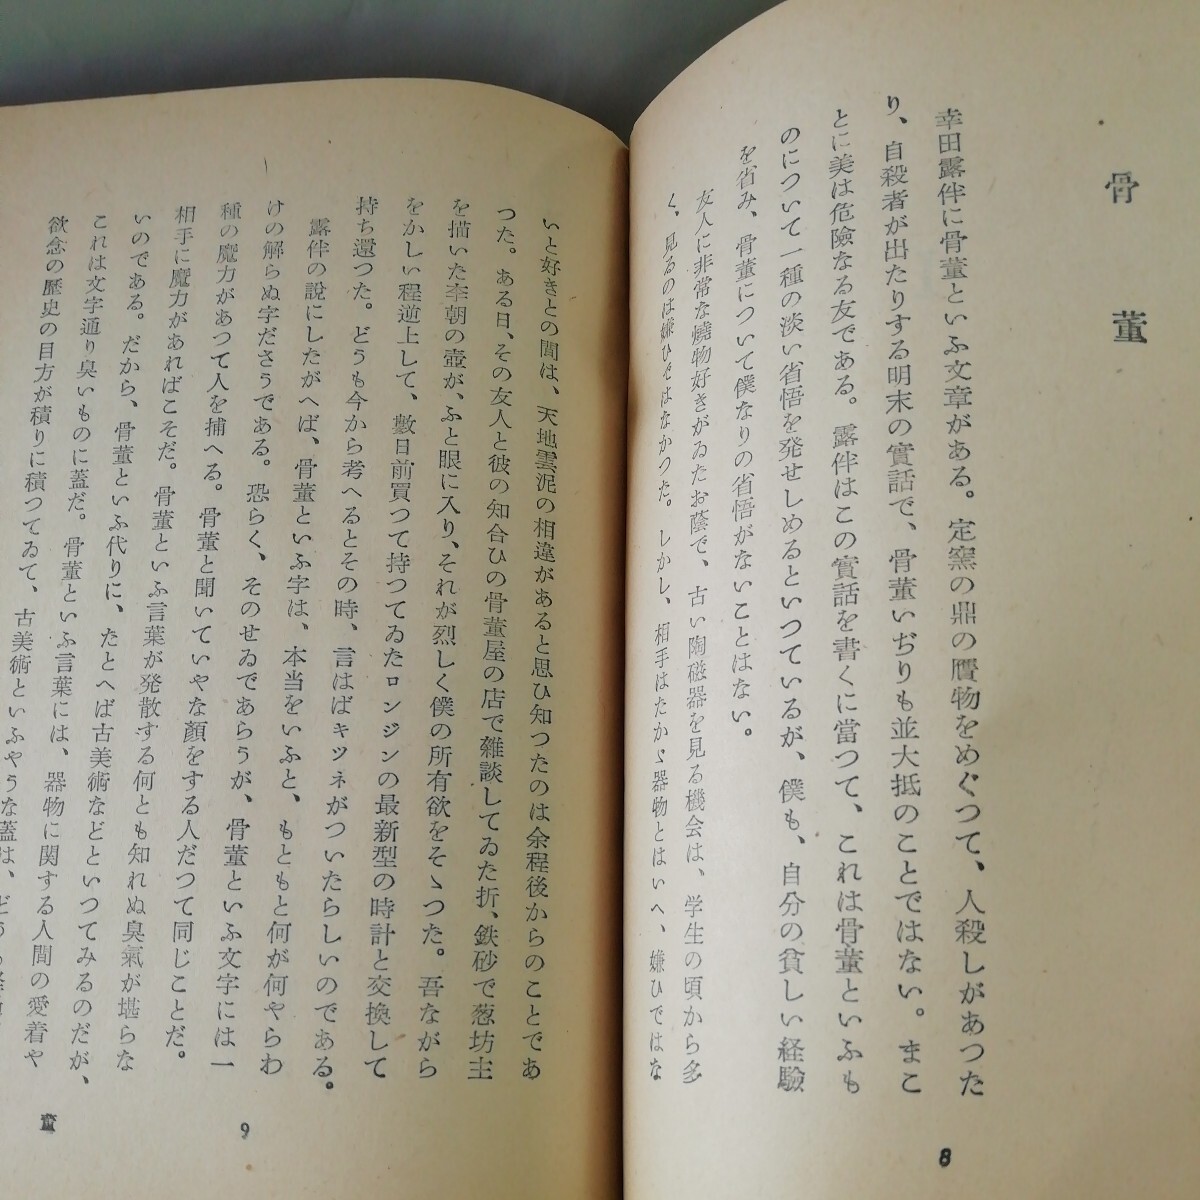 骨董
幸田露伴に骨董といふ文章がある。定窯の鼎の贋物をめぐつて、人殺しがあつた
り、自殺者が出たりする明末の實話で、骨董いぢりも並大抵のことではない。まこ
とに美は危險なる友である。露伴はこの實話を書くに當つて、これは骨董といふも
のについて一種の淡い省悟を発せしめるといつているが、僕も、自分の貧しい経驗
を省み、骨董について僕なりの省悟がないことはない。
友人に非常な燒物好きがゐたお蔭で、古い陶磁器を見る機会は、学生の頃から多
く、見るのは嫌ひではなかつた。しかし、相手はたかゞ器物とはいへ、嫌ひではな
8
いと好きとの間は、天地雲泥の相違があると思ひ知つたのは余程後からのことであ
つた。ある日、その友人と彼の知合ひの骨董屋の店で雑談してゐた折、鉄砂で葱坊主
を描いた李朝の壺が、ふと眼に入り、それが烈しく僕の所有欲をそゝつた。吾ながら
をかしい程逆上して、數日前買つて持つてゐたロンジンの最新型の時計と交換して
持ち還つた。どうも今から考へるとその時、言はばキツネがついたらしいのである。
露伴の說にしたがへば、骨董といふ字は、本当をいふと、もともと何が何やらわ
けの解らぬ字ださうである。恐らく、そのせゐであらうが、骨董といふ文字には一
種の魔力があつて人を捕へる。骨董と聞いていやな顏をする人だつて同じことだ。
相手に魔力があればこそだ。骨董といふ言葉が発散する何とも知れぬ臭氣が堪らな
いのである。だから、骨董といふ代りに、たとへば古美術などといつてみるのだが、
これは文字通り臭いものに蓋だ。骨董といふ言葉には、器物に関する人間の愛着や
欲念の歴史の目方が積りに積つてゐて、古美術といふやうな蓋は、どう
董
9